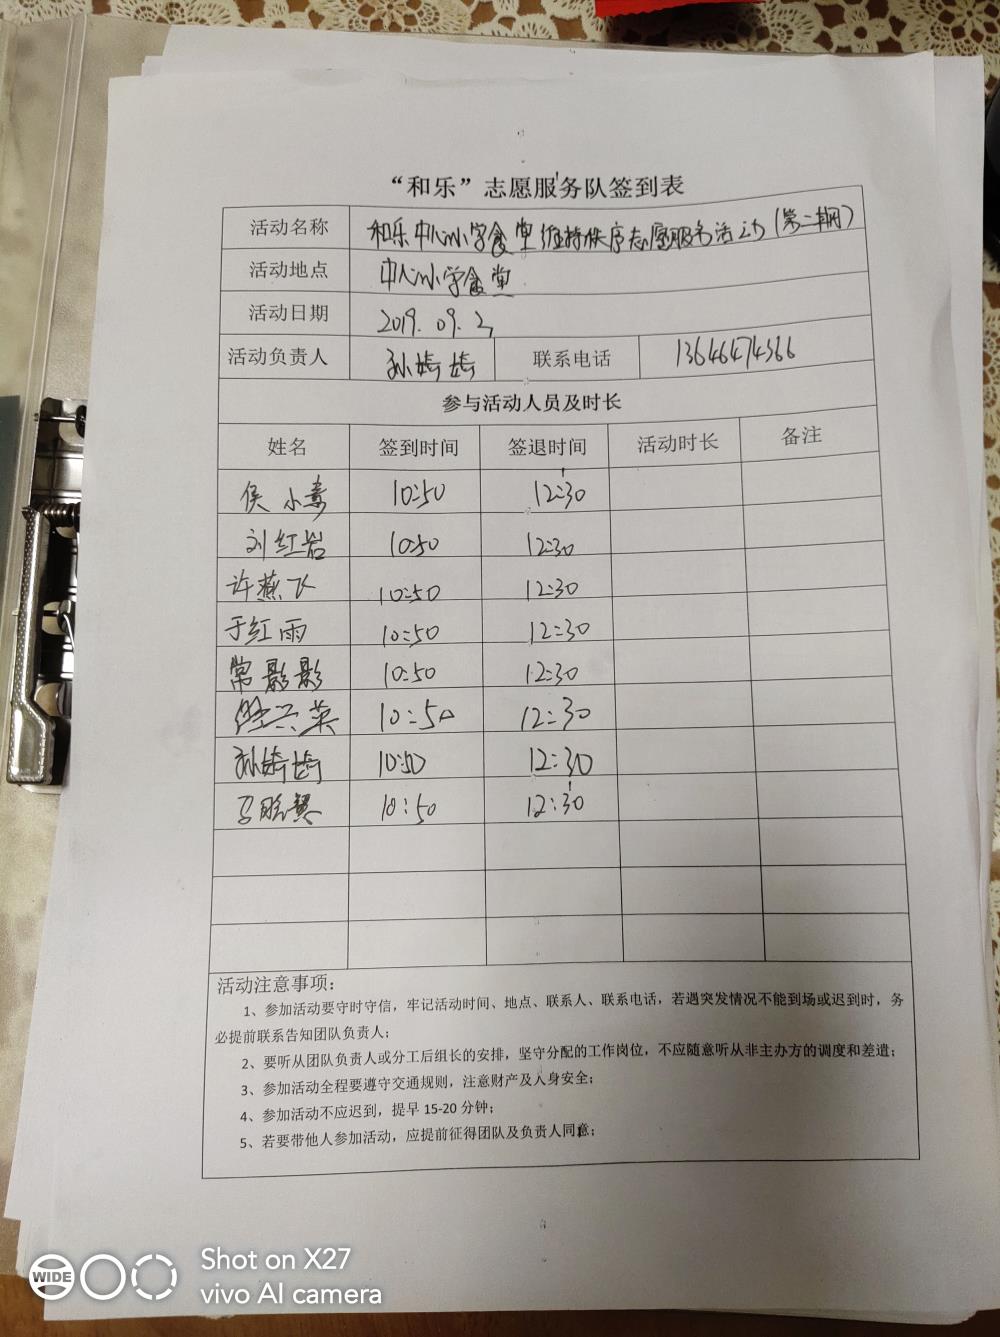 “和乐”志愿服务队签到表
活动名称 和乐中心小学食堂维持秩序志愿服务活动(第二期)
活动地点 中心小学食堂
活动日期 2019.09.2
活动负责人 孙婷婷 联系电话 13646474366
参与活动人员及时长
姓名 签到时间 签退时间 活动时长 备注
侯小青 10:50 12:30
刘红岩 10:50 12:30
许燕飞 10:50 12:30
于红雨 10:50 12:30
常影影 10:50 12:30
兴英 10:50 12:30
孙婷婷 10:50 12:30
10:50 12:30
活动注意事项:
1、参加活动要守时守信，牢记活动时间、地点、联系人、联系电话，若遇突发情况不能到场或迟到时，务
必提前联系告知团队负责人;
2、要听从团队负责人或分工后组长的安排，坚守分配的工作岗位，不应随意听从非主办方的调度和差遣;
3、参加活动全程要遵守交通规则，注意财产及人身安全;
4、参加活动不应迟到，提早 15-20 分钟;
5、若要带他人参加活动，应提前征得团队及负责人同意;
WIDE
Shot on X27
vivo AI camera